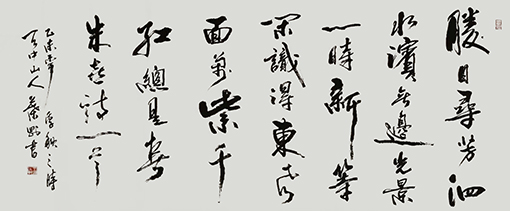 勝日尋芳泗
水濱无邊光景
一時新等
閑識得東風
面萬紫千
紅總是春
朱熹詩一首
乙未年深秋之時
天中山人書